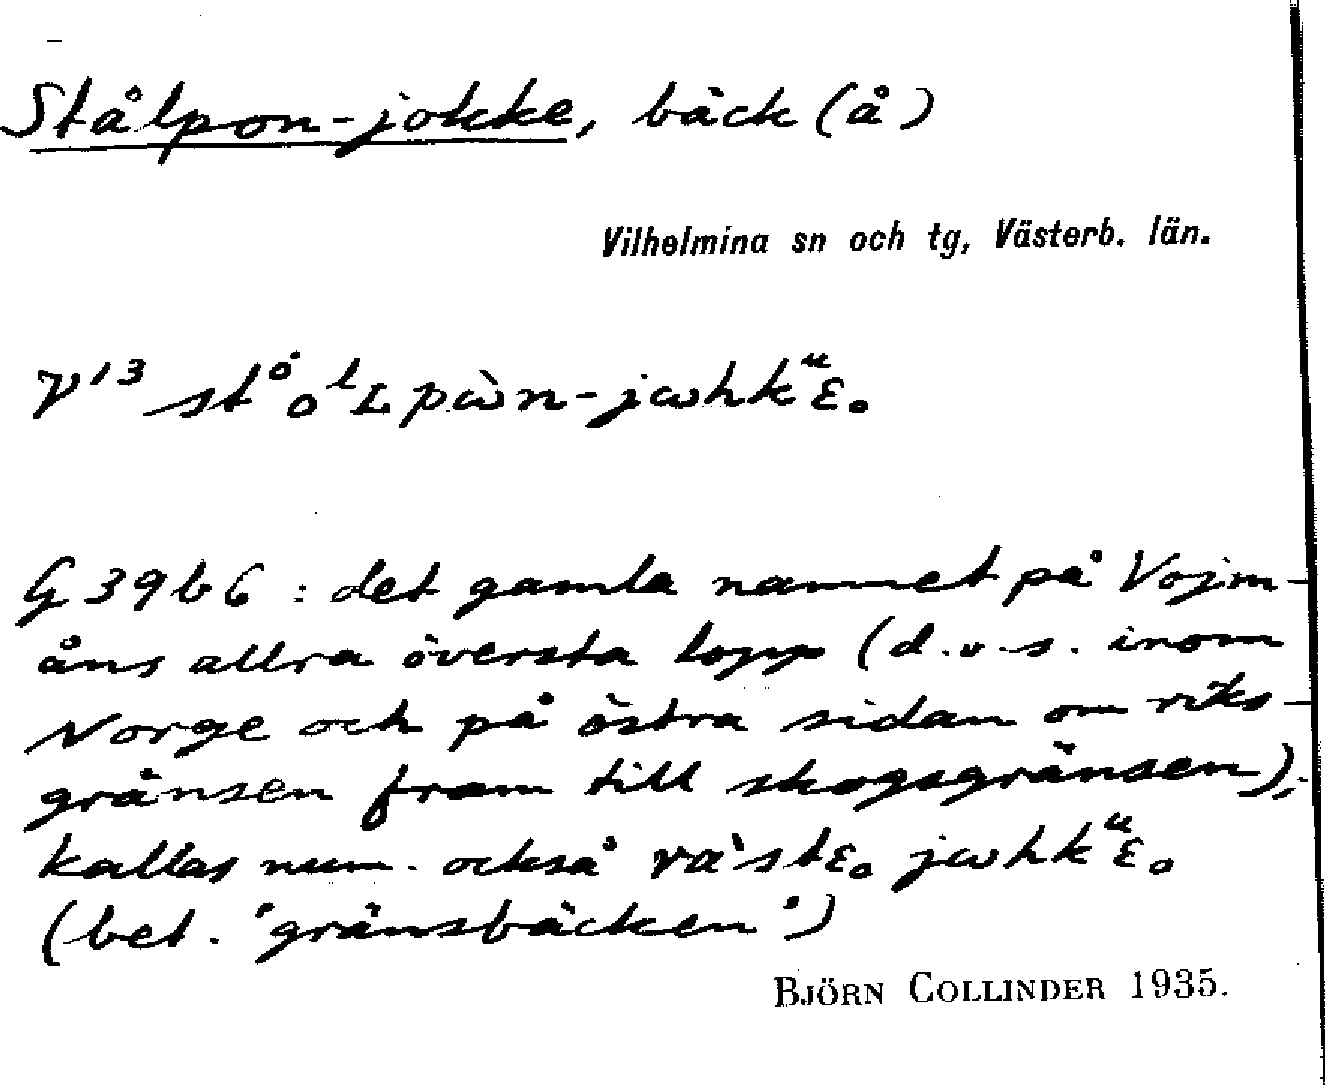 Stålpon-jokke, bäck (å)
Vilhelmina sn och tg, Västerb. län.
V'3 stå̊oˡʟpὼn-jωhkᵘ̈ɛ。
G 39 b 6 : det gamla namnet på Vojm-
åns allra översta lopp (d.v.s. inom
Norge och på östra sidan om riks-
gränsen fram till skogsgränsen);
kallas num. också rà'stɛ。 jωhkᵘ̈ɛ。
(bet. "gränsbäcken")
BJÖRN COLLINDER 1935.